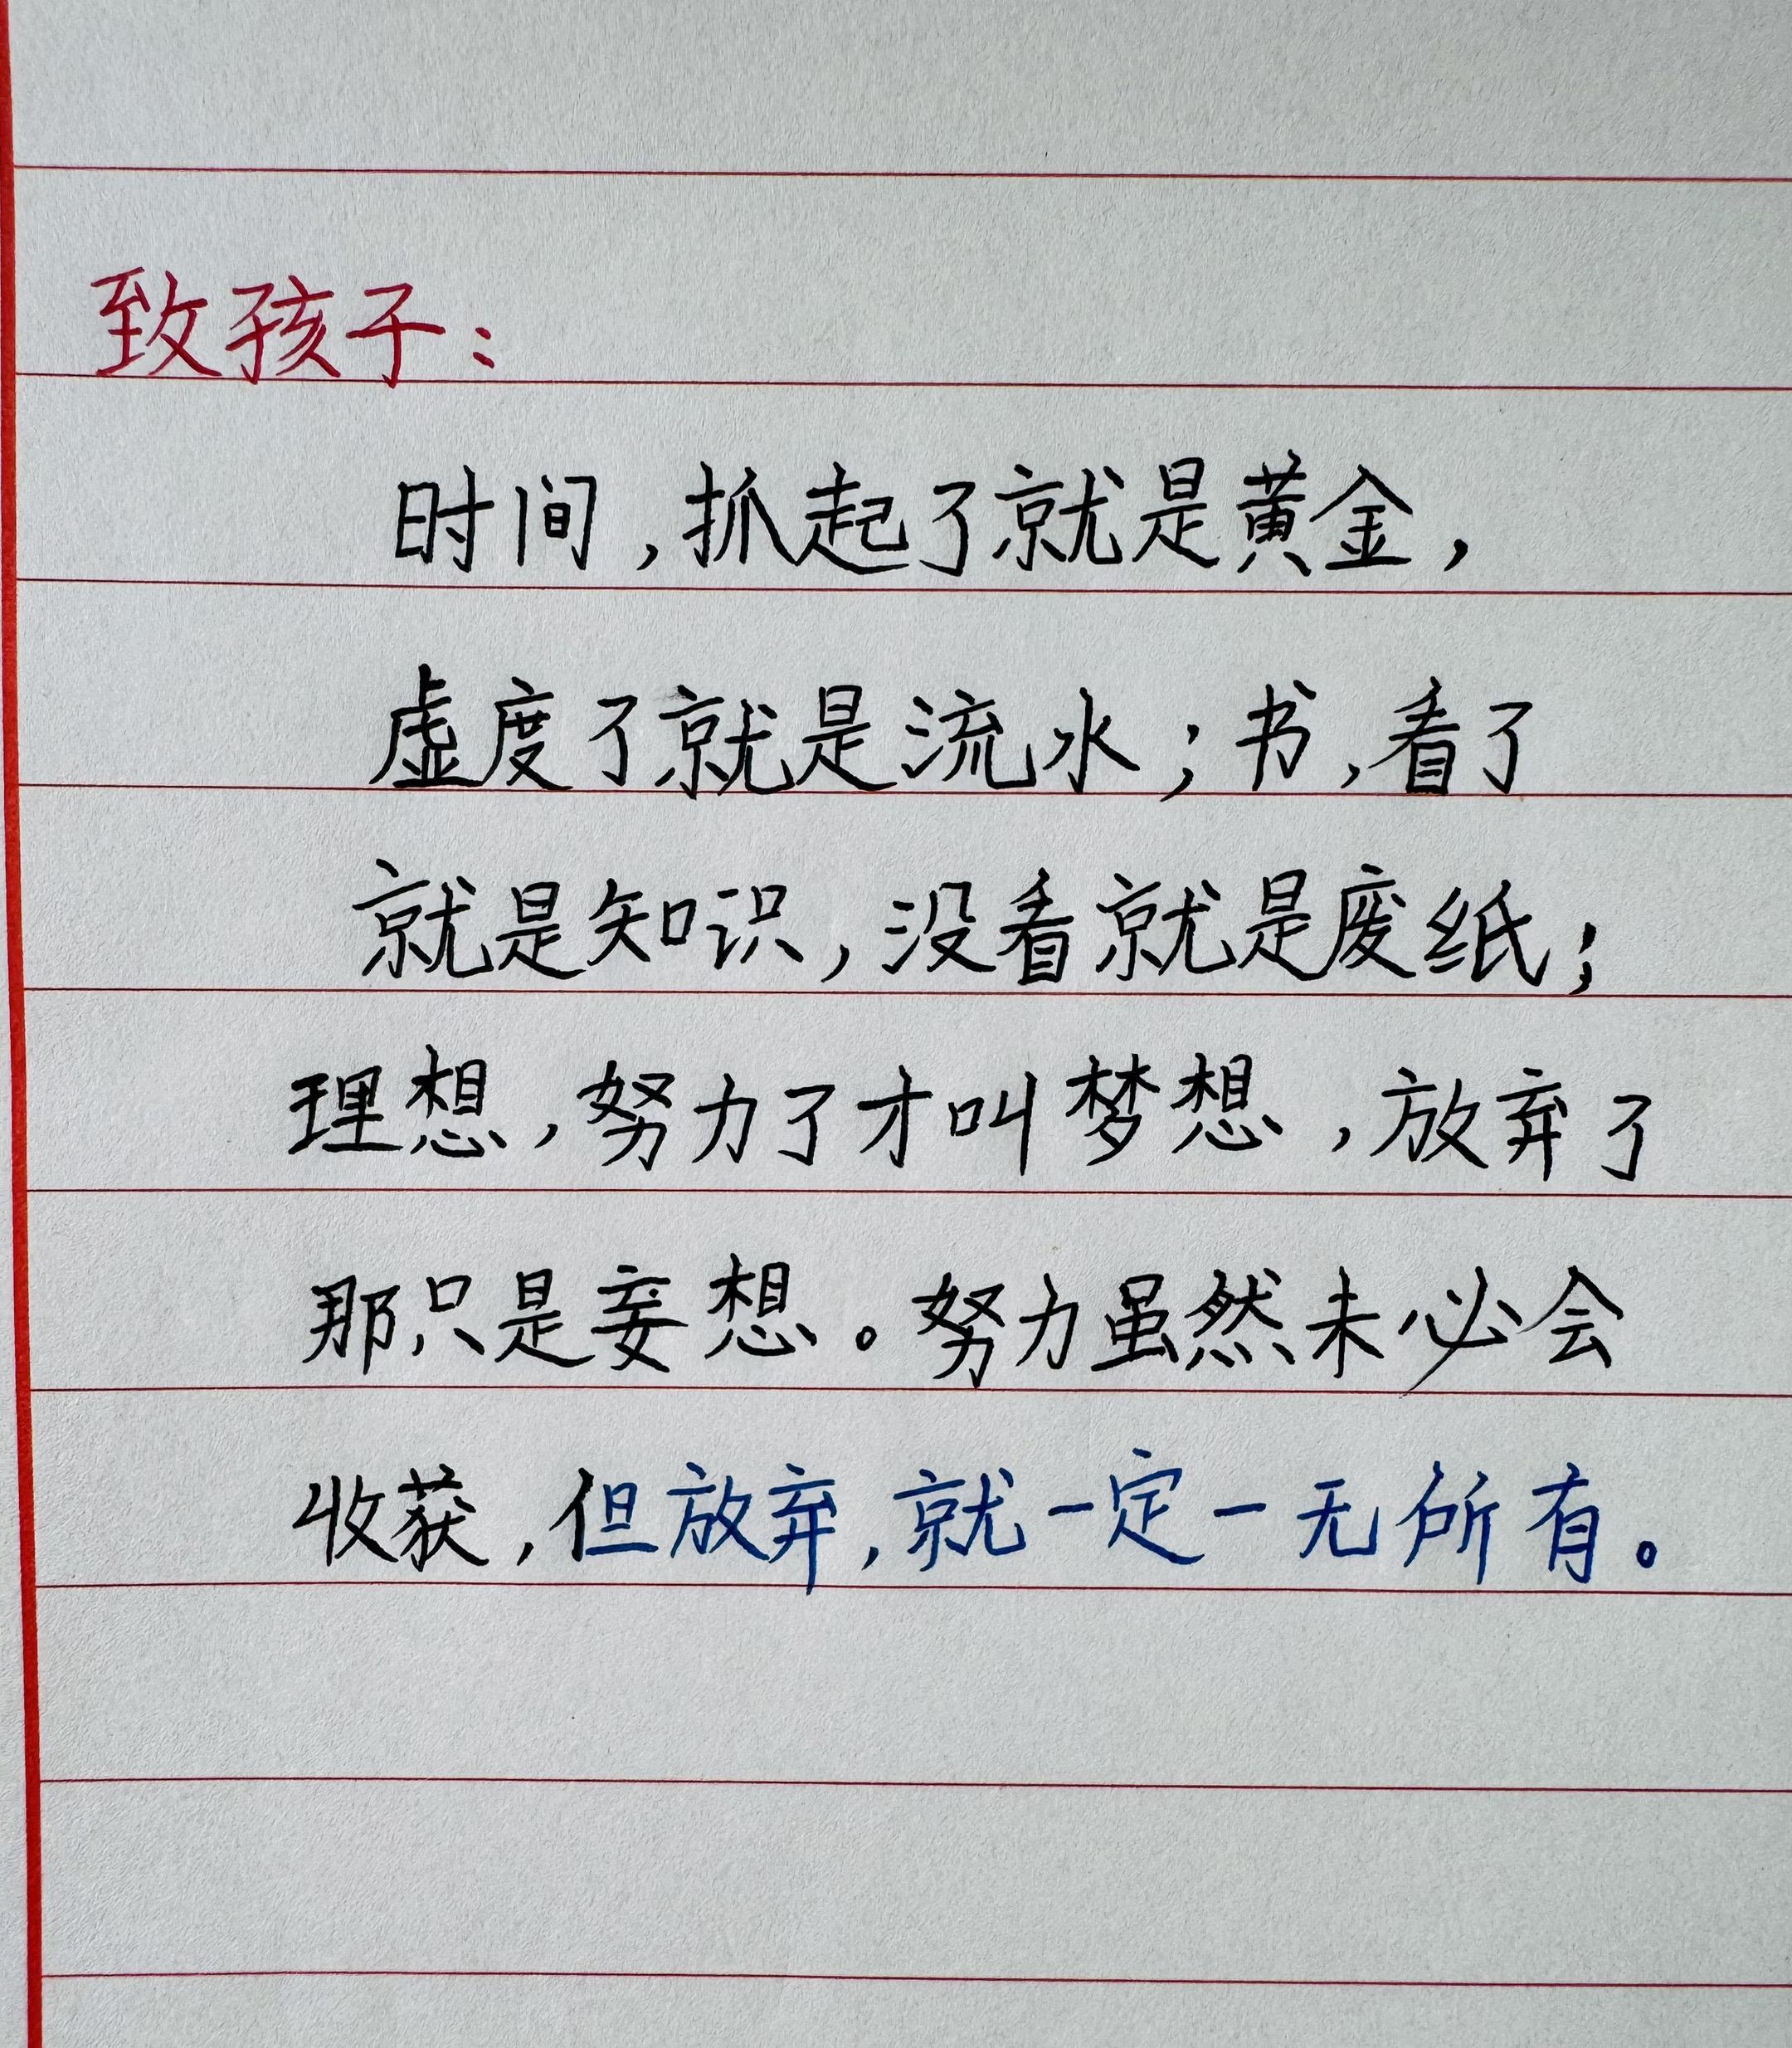 致孩子：
时间，抓起了就是黄金，
虚度了就是流水；书，看了
就是知识，没看就是废纸；
理想，努力了才叫梦想，放弃了
那只是妄想。努力虽然未必会
收获，但放弃，就一定一无所有。